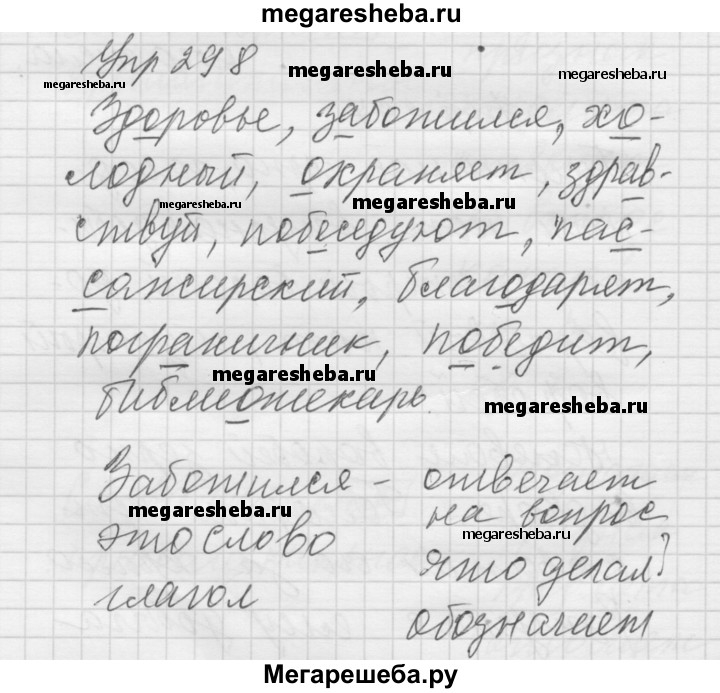 megaresheba.ru
Упр 298
megaresheba.ru megaresheba.ru megaresheba.ru
Здоровье, заботился, хо-
лодный, охраняет, здрав-
megaresheba.ru megaresheba.ru
ствуй, побеседуют, пас-
сажирский, благодарят,
пограничник, победит,
megaresheba.ru
библиотекарь.
megaresheba.ru
Заботился - отвечает
megaresheba.ru на вопрос
это слово megaresheba.ru
что делал?
глагол
обозначает
Мегарешеба.ру